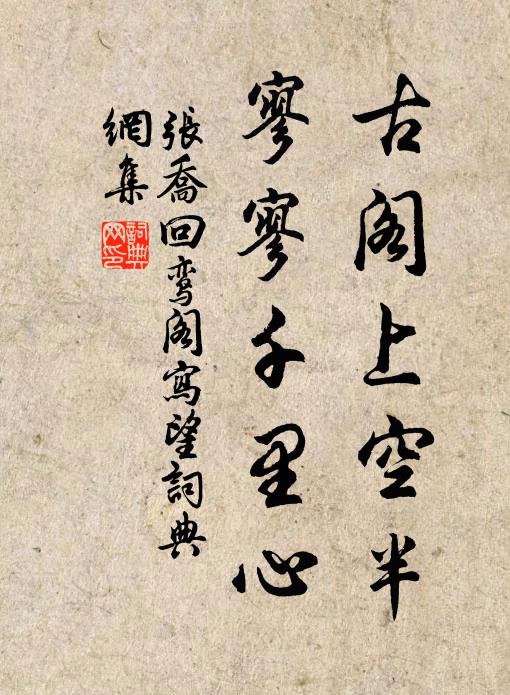 古阁上空半
寥寥千里心
張喬回鸾阁寫望詞典
網集
詞典
网印